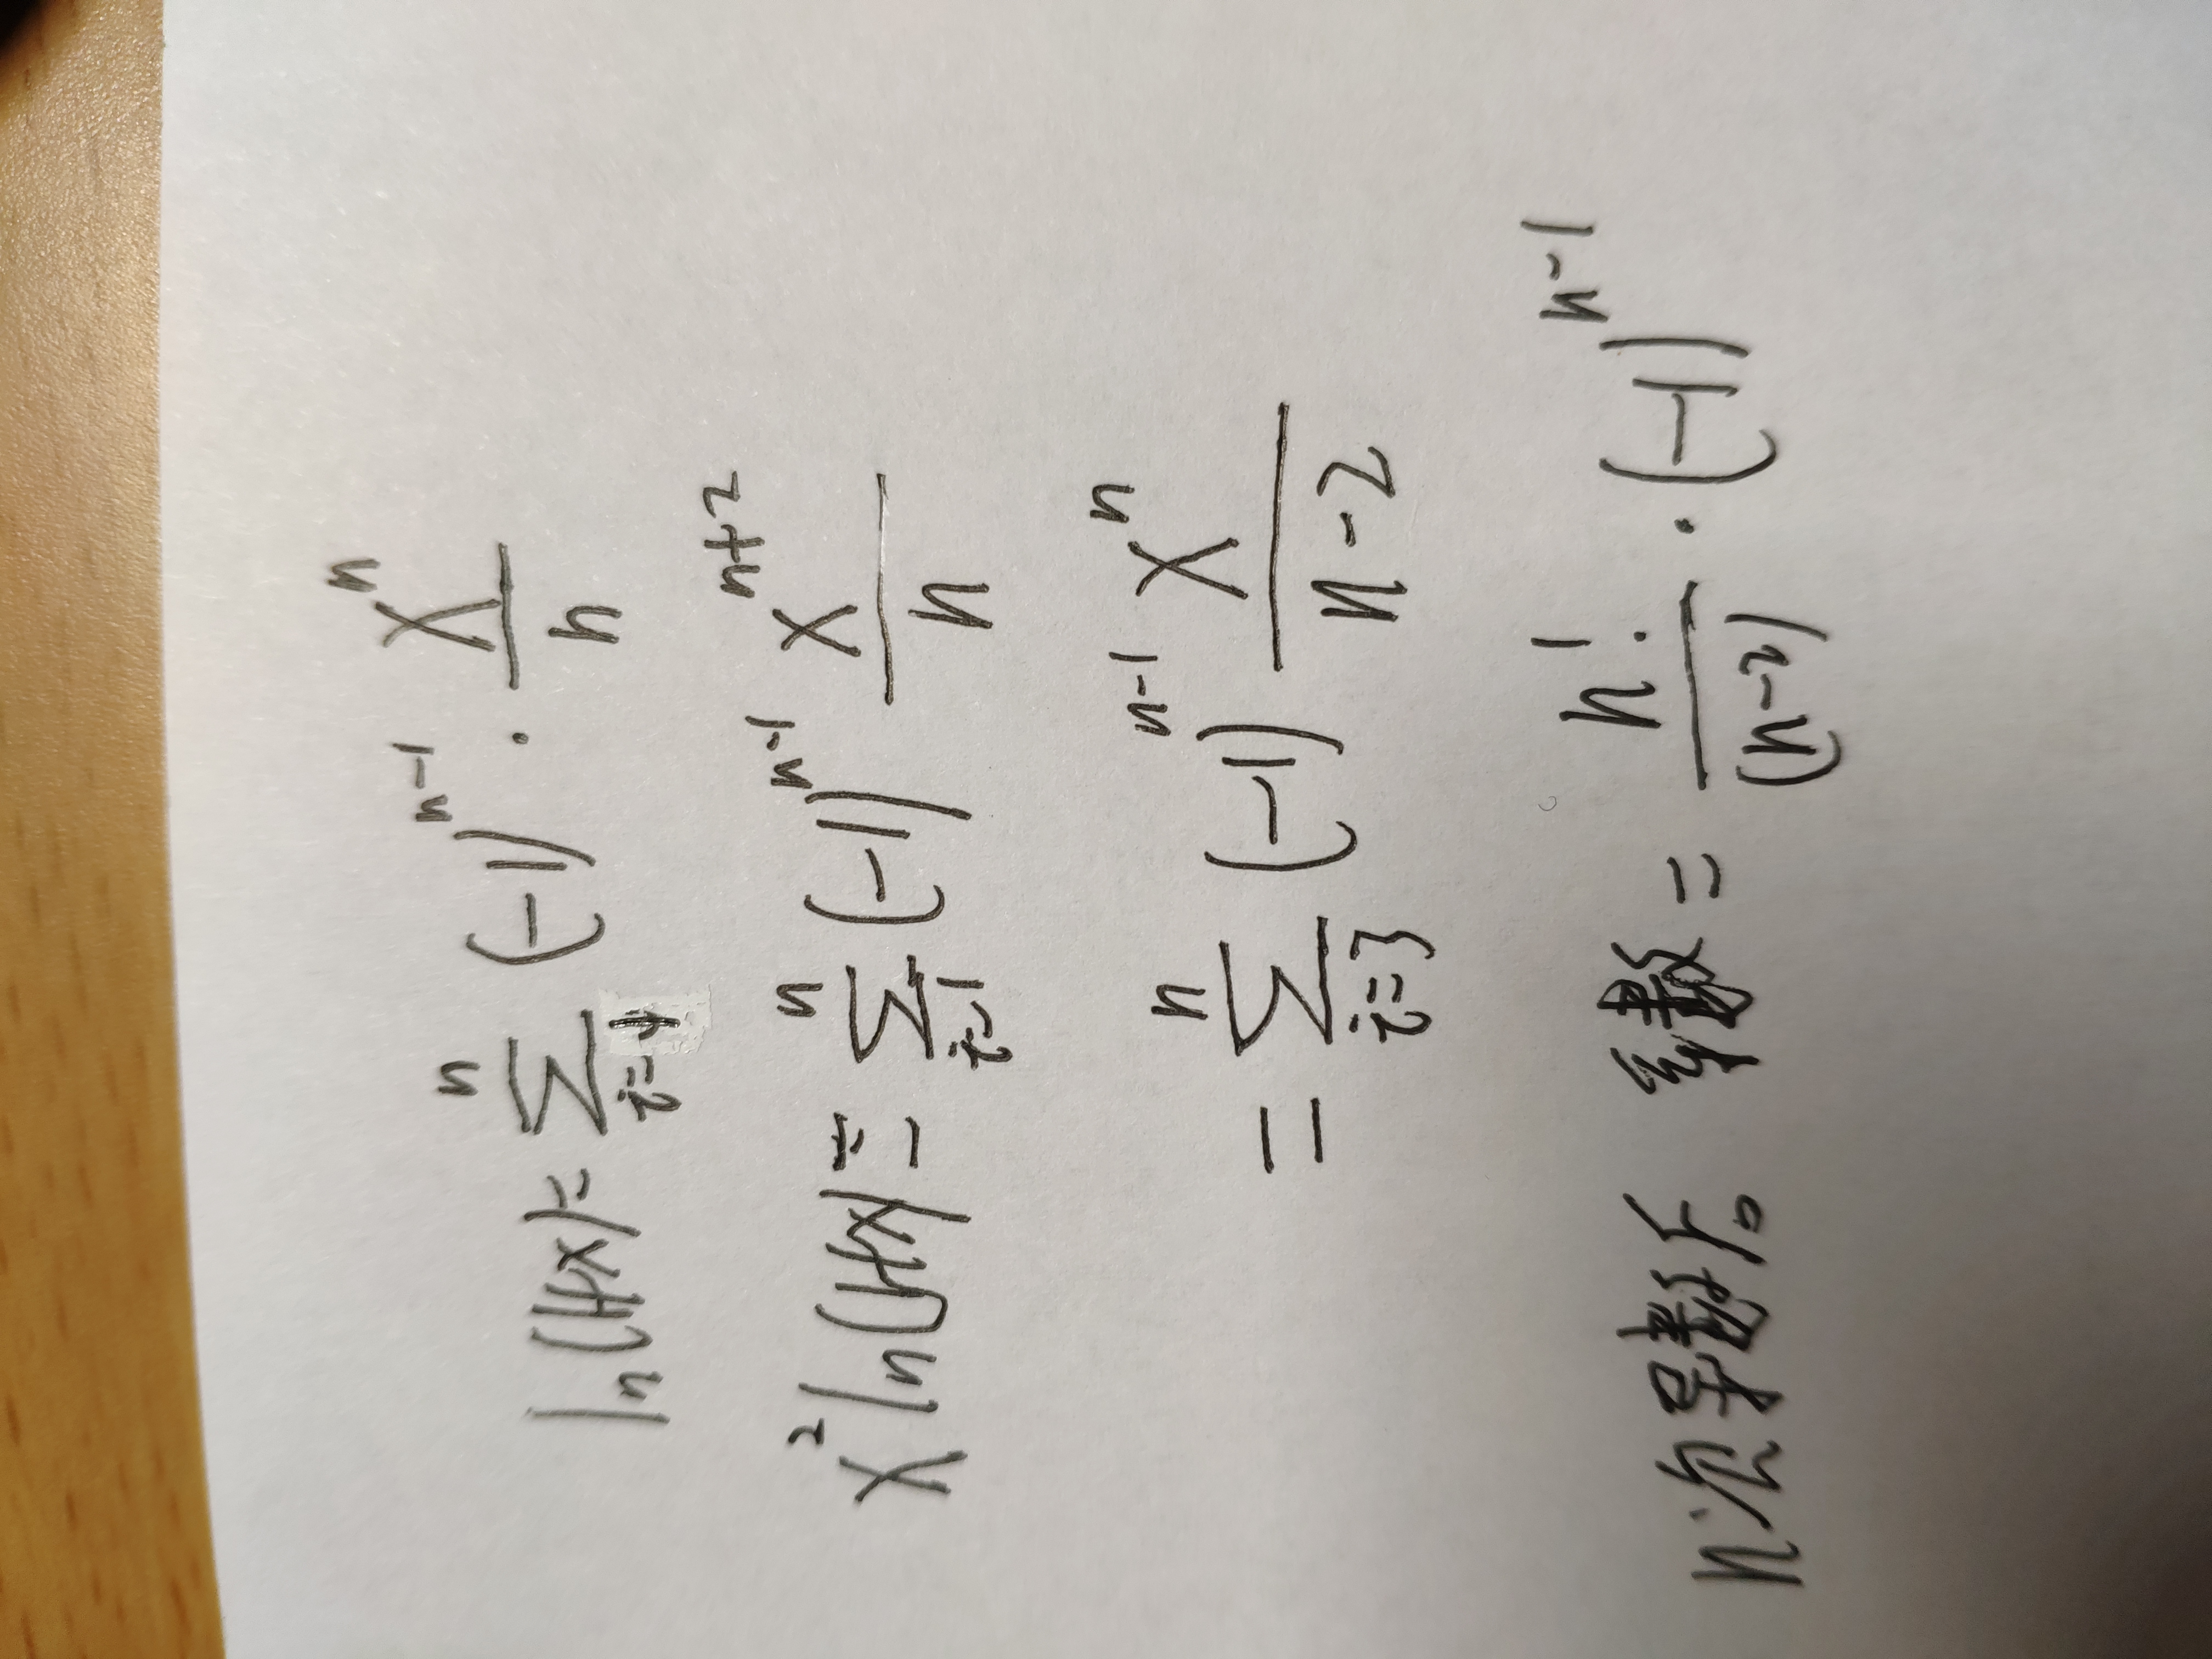 ln(1+x) = \sum_{i=1}^{n} (-1)^{n-1} \cdot \frac{x^n}{n}
x^2 ln(1+x) = \sum_{i=1}^{n} (-1)^{n-1} \frac{x^{n+2}}{n}
= \sum_{i=3}^{n} (-1)^{n-1} \frac{x^n}{n-2}
n次导 = \frac{n!}{(n-2)} \cdot (-1)^{n-1}